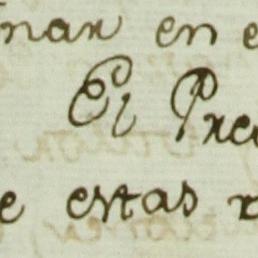 nar en e
El Pre
e estas r